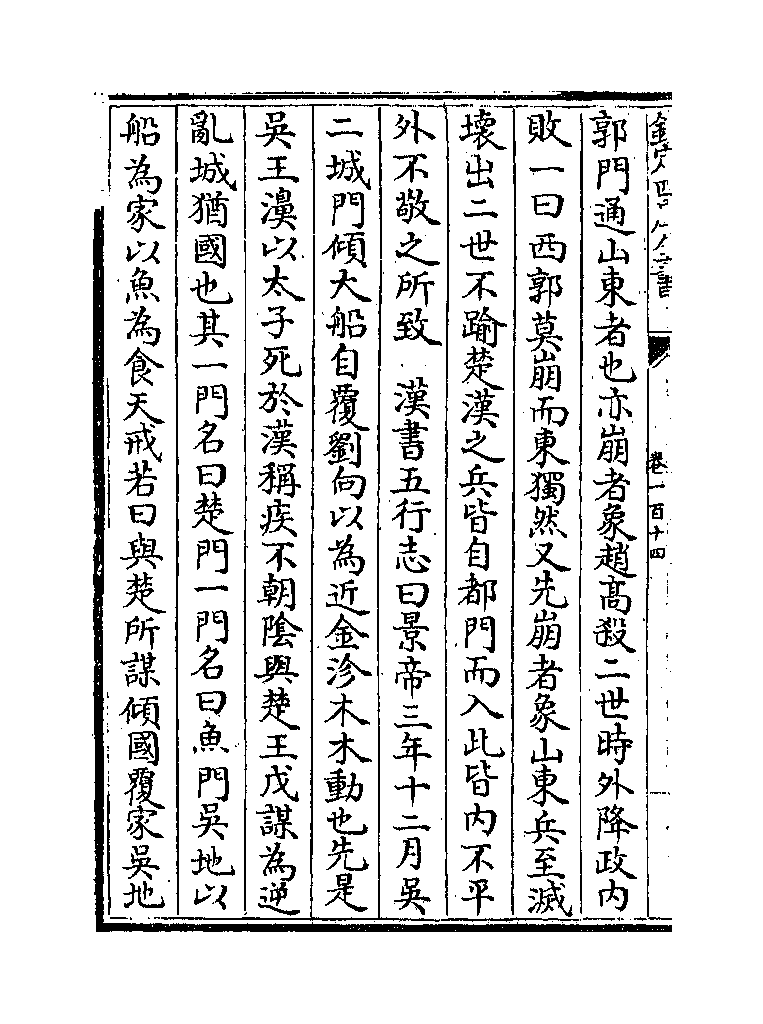 欽定四庫全書
卷一百十四
郭門通山東者也亦崩者象趙高殺二世時外降政内
敗一曰西郭莫崩而東獨然又先崩者象山東兵至滅
壞出二世不踰楚漢之兵皆自都門而入此皆内不平
外不敬之所致　漢書五行志曰景帝三年十二月吳
二城門傾大船自覆劉向以為近金沴木木動也先是
吳王濞以太子死於漢稱疾不朝陰與楚王戊謀為逆
亂城猶國也其一門名曰楚門一門名曰魚門吳地以
船為家以魚為食天戒若曰與楚所謀傾國覆家吳地